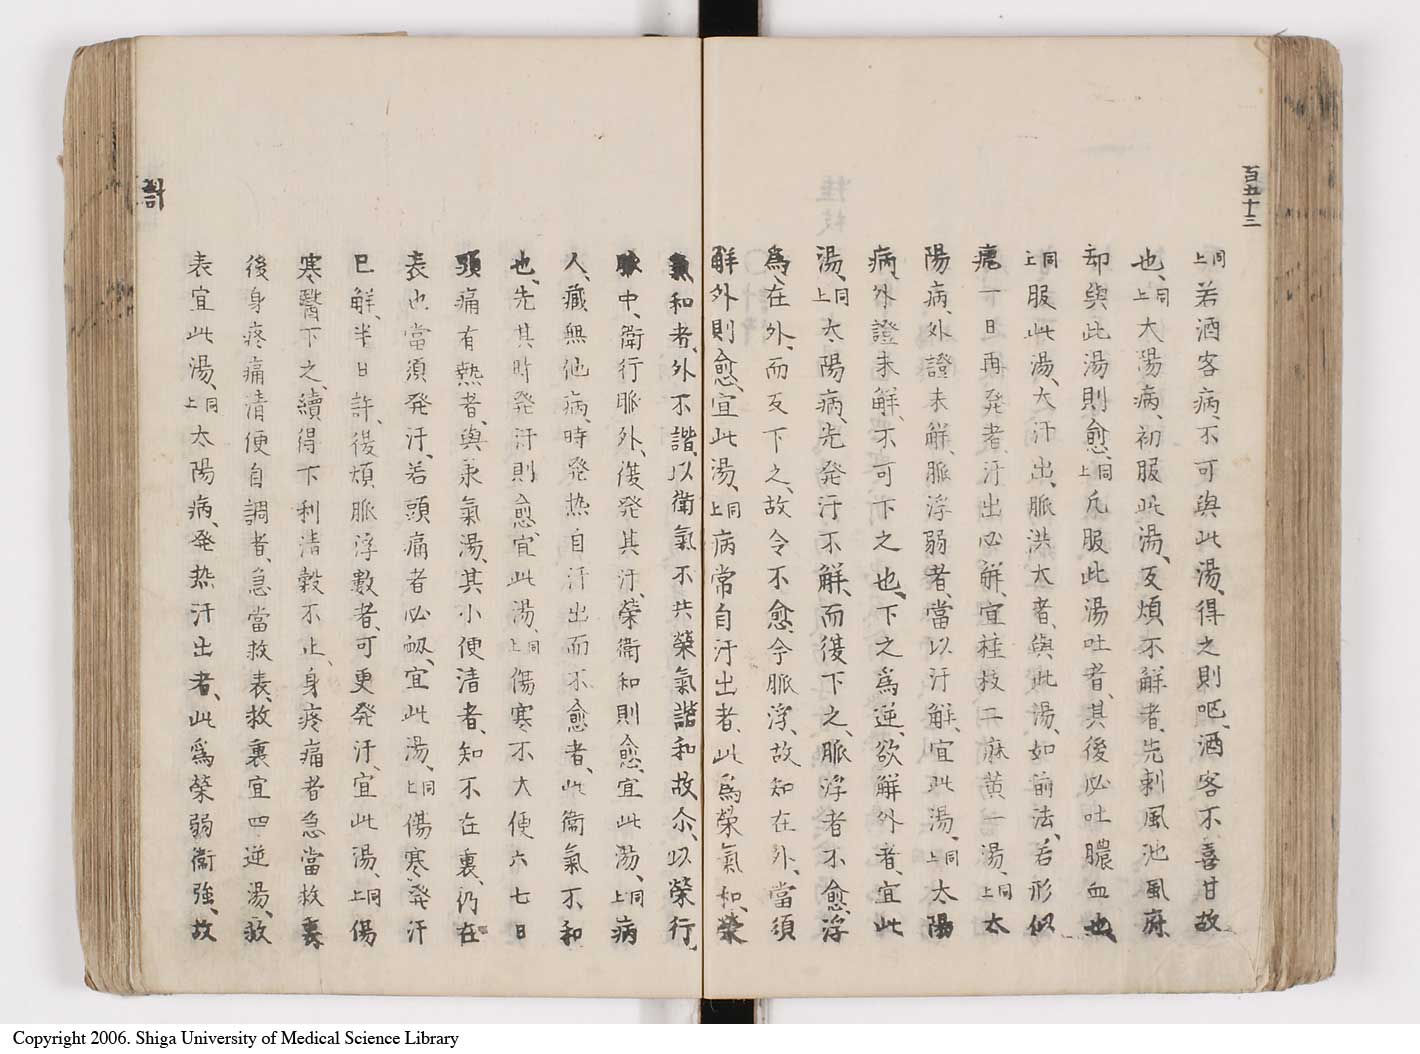 百五十三
上同若酒客病、不可與此湯、得之則呕、酒客不喜甘故
也、上同大陽病、初服此湯、反煩、不解者、先刺風池風府、
却與此湯則愈、上同凡服此湯吐者、其後必吐膿血也、
上同服此湯、大汗出、脈洪大者、與此湯、如前法、若形似
瘧一日再発者、汗出必解、宜桂枝二麻黄一湯、上同太
陽病、外證未解、脈浮弱者、當以汗解、宜此湯、上同太陽
病、外證未解、不可下之也、下之為逆、欲解外者、宜此
湯、上同太陽病、先発汗不解、而復下之、脈浮者不愈、浮
為在外、而反下之、故令不愈、今脈浮、故知在外、當須
解外則愈、宜此湯、上同病常自汗出者、此為榮氣和、榮
氣和者、外不諧、以衛氣不共榮氣諧和故尒、以榮行
脈中、衛行脈外、復発其汗、榮衛和則愈、宜此湯、上同病
人、藏無他病、時発热自汗出而不愈者、此衛氣不和
也、先其時発汗則愈、宜此湯、上同傷寒不大便六七日
頭痛有熱者、與承氣湯、其小便清者、知不在裏、仍在
表也當須発汗、若頭痛者必衂、宜此湯、上同傷寒、発汗
已解、半日許、復煩、脈浮數者、可更発汗、宜此湯、上同傷
寒醫下之、續得下利清穀不止、身疼痛者急當救裏
後身疼痛清便自調者、急當救表、救裏宜四逆湯、救
表宜此湯、上同太陽病、発热汗出者、此為榮弱衛強、故